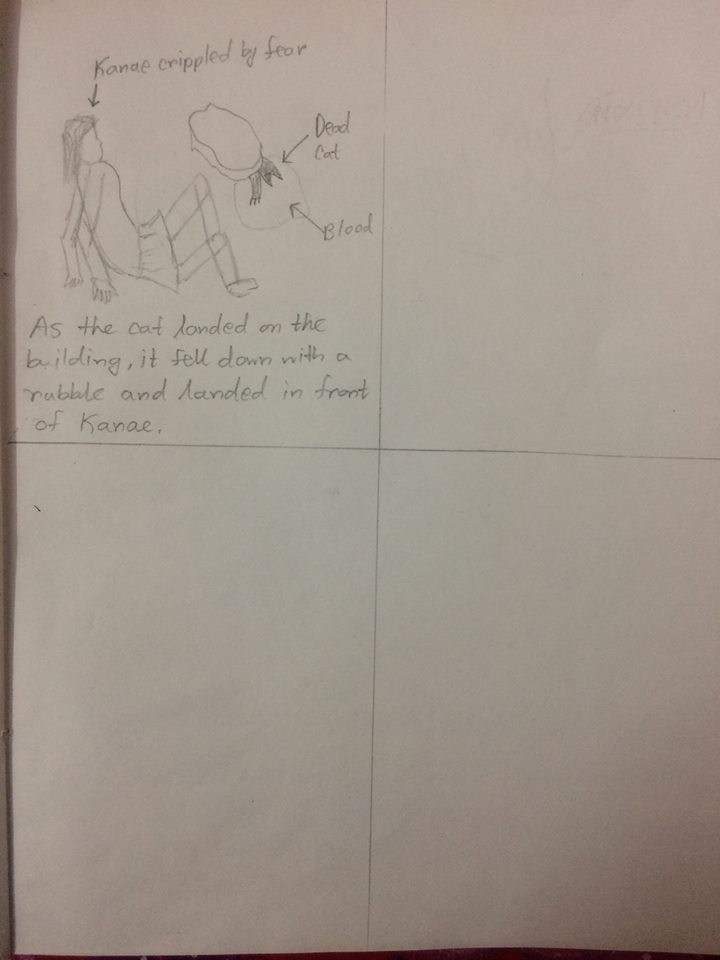 Kanae crippled by fear
Dead
cat
Blood
As the cat landed on the
building, it fell down with a
rubble and landed in front
of Kanae.